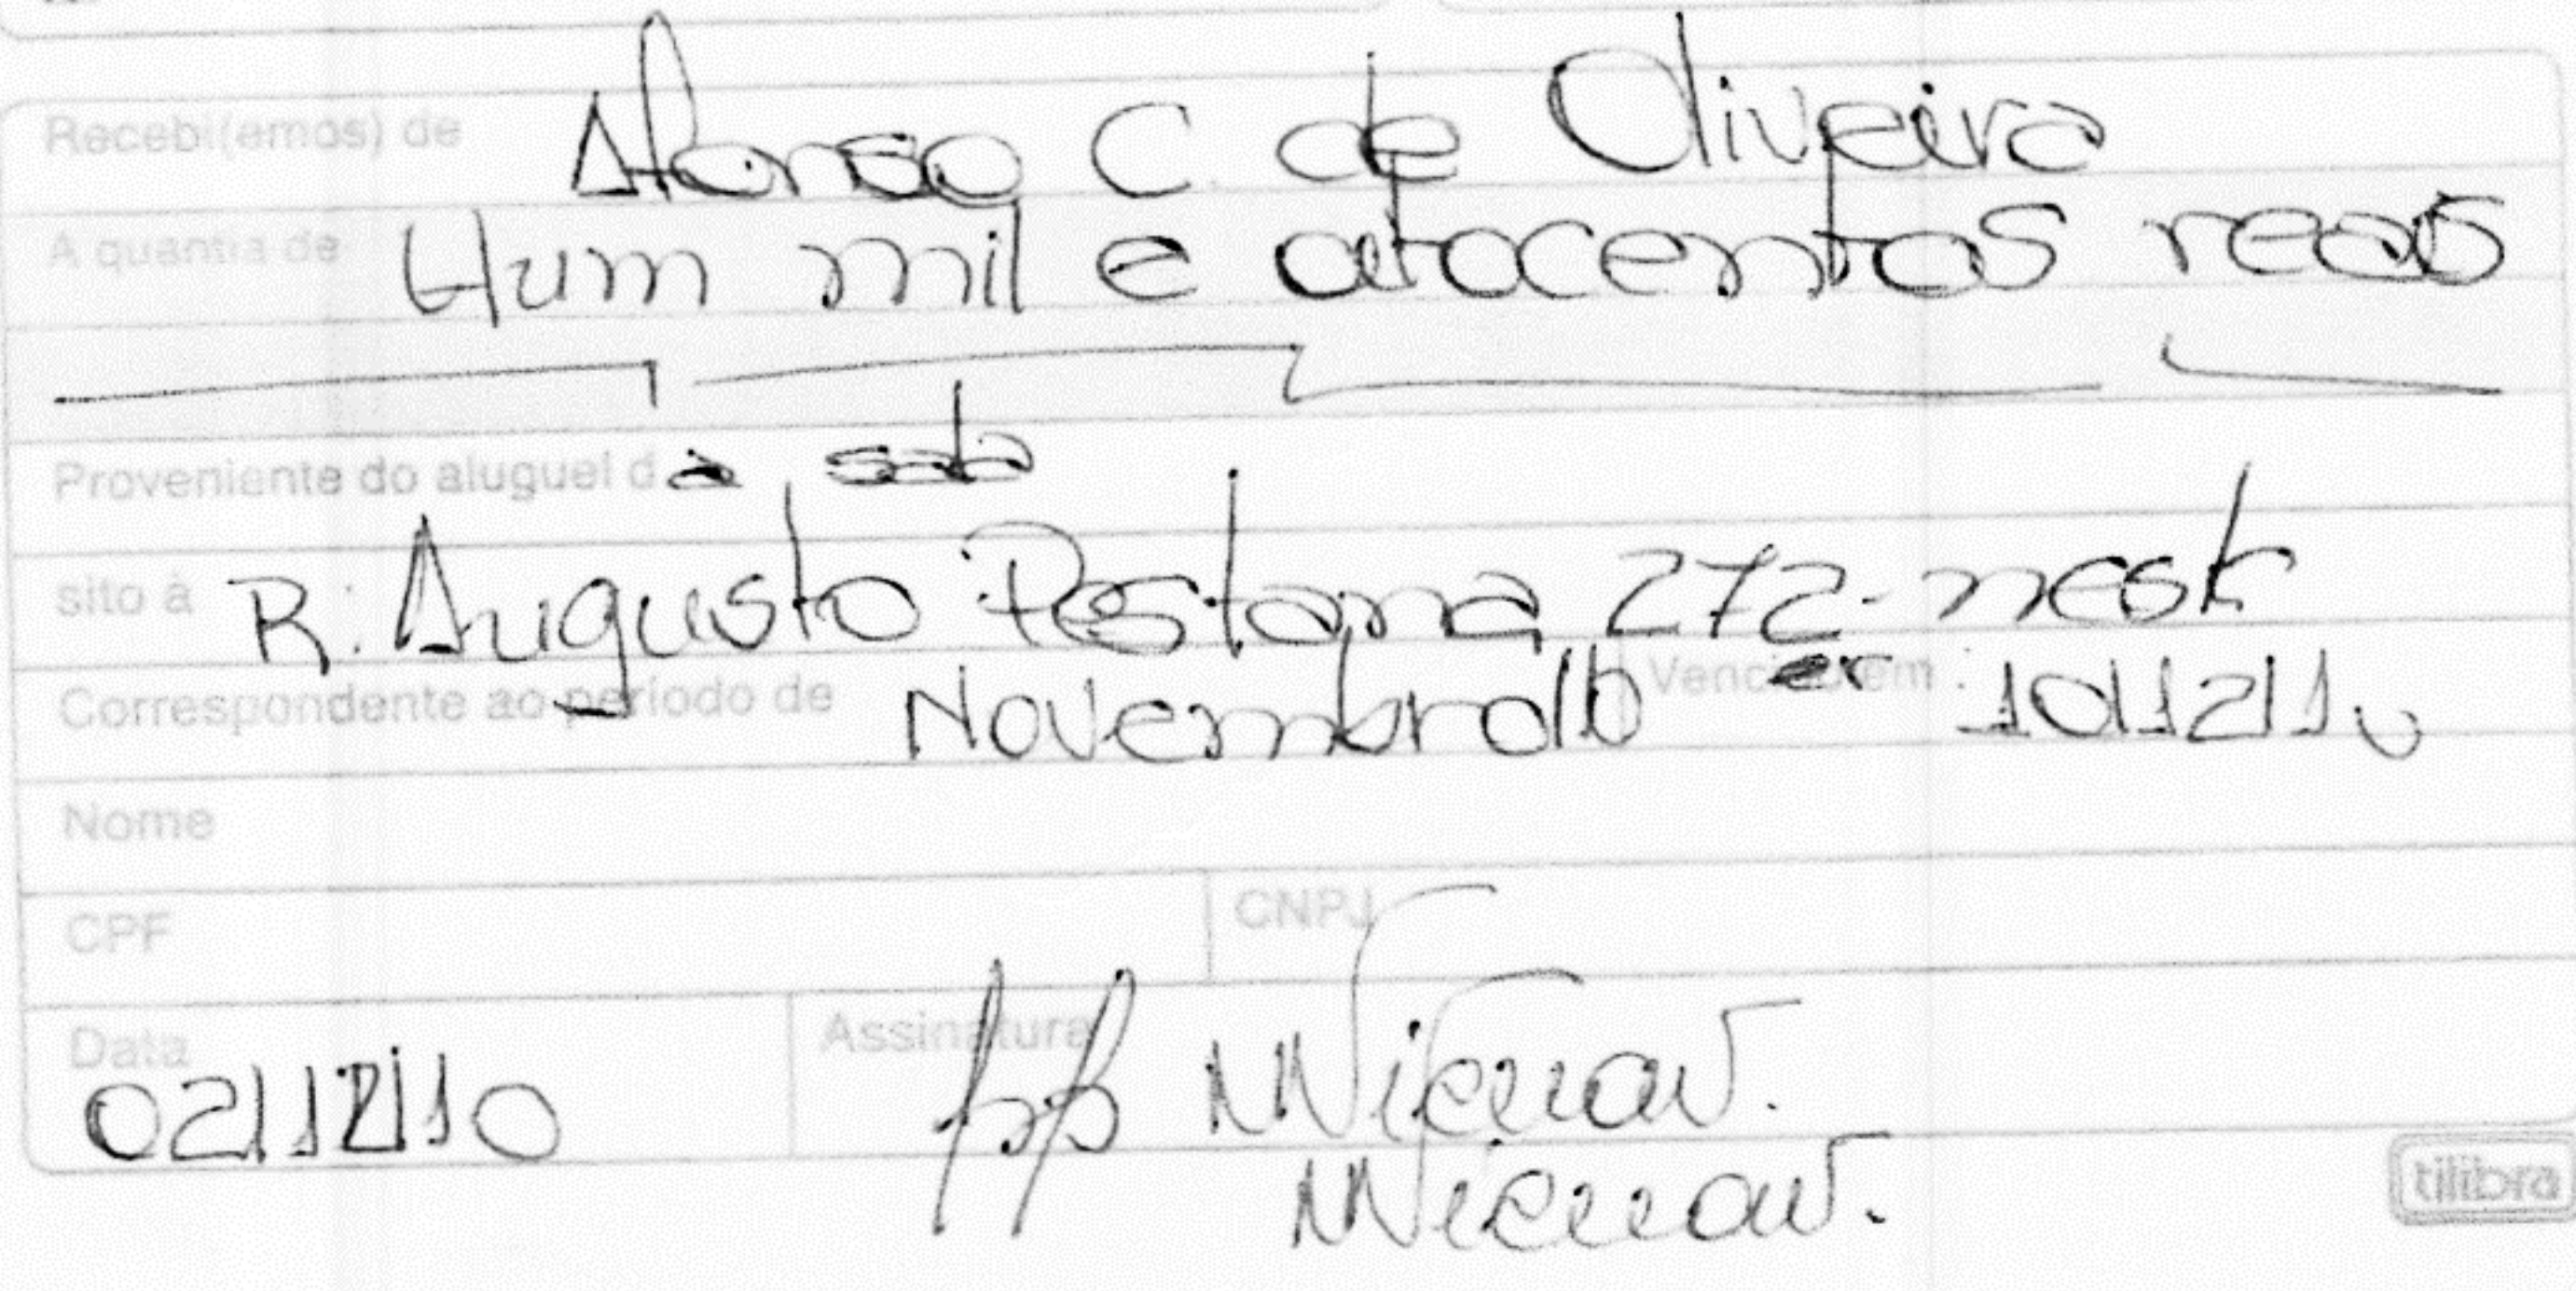 Recebi(emos) de Afonso C. de Oliveira
A quantia de Hum mil e oitocentos reais
Proveniente do aluguel d a sala
sito à R: Augusto Pestana, 272 - neste
Correspondente ao período de Novembro/10 Vencido em : 10/12/10
Nome
CPF CNPJ
Data 02/12/10 Assinatura pp
tilibra